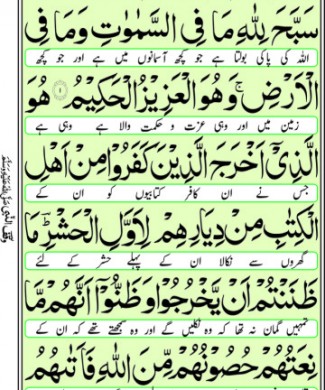 سَبَّحَ لِلّٰهِ مَا فِى السَّمٰوٰتِ وَمَا فِى
اللہ کی پاکی بولتا ہے جو کچھ آسمانوں میں ہے اور جو کچھ
الْاَرْضِ ۚ وَهُوَ الْعَزِيْزُ الْحَكِيْمُ ۝۱ هُوَ
زمین میں اور وہی عزت و حکمت والا ہے وہی ہے
الَّذِىْۤ اَخْرَجَ الَّذِيْنَ كَفَرُوْا مِنْ اَهْلِ
جس نے ان کافر کتابیوں کو ان کے
الْكِتٰبِ مِنْ دِيَارِهِمْ لِاَوَّلِ الْحَشْرِ ؕ مَا
گھروں سے نکالا ان کے پہلے حشر کے لئے
ظَنَنْتُمْ اَنْ يَّخْرُجُوْا وَظَنُّوْۤا اَنَّهُمْ مَّا
تمہیں گمان نہ تھا کہ وہ نکلیں گے اور وہ سمجھتے تھے کہ ان کے
نِعَتُهُمْ حُصُوْنُهُمْ مِّنَ اللّٰهِ فَاَتٰىهُمُ
وقف النبی صلی اللہ علیہ وسلم